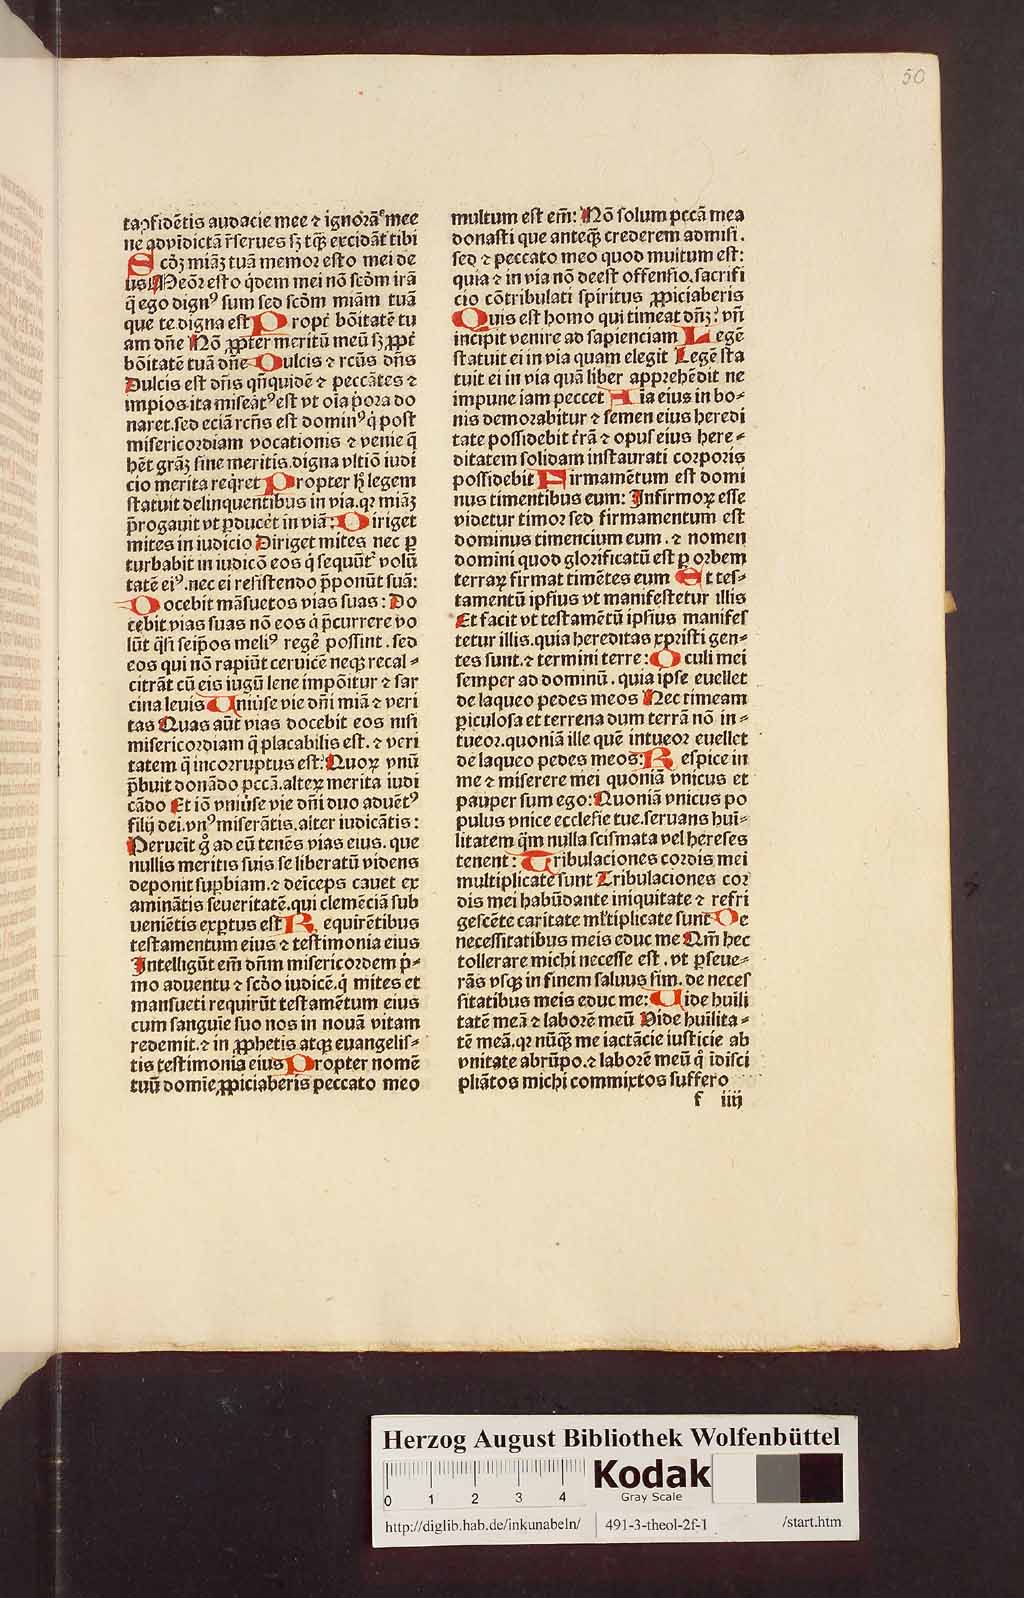 50
tapfidētis audacie mee ⁊ ignorāꝰ mee
ne ad vīdictā r̄serues sꝫ tq̄ꝫ excidāt tibi
Scd̄ꝫ miāꝫ tuā memor esto mei de
us Meōr esto q̇dem mei nō scd̄m irā
q̄ ego dignꝰ sum sed scd̄m miām tuā
que te digna est Propt̄ bōitatē tu
am dn̄e Nō ꝓpter meritū meū sꝫ ꝓpt̄
bōitatē tuā dn̄e Dulcis ⁊ rcūs dn̄s
Dulcis est dn̄s qn̄quidē ⁊ peccātes ⁊
impios ita miseāt̉ est vt oīa p̄ora do
naret. sed eciā rcn̄s est dominꝰ q̇ post
misericordiam vocationis ⁊ venie q̄
hēt grāꝫ sine meritis. digna vltiō iudi
cio merita req̇ret Propter hꝫ legem
statuit delinquentibus in via. qꝛ miāꝫ
p̄rogauit vt ꝑducēt in viā: Diriget
mites in iudicio Diriget mites nec ꝑ
turbabit in iudicō eos q̇ sequūt̉ volū
tatē eiꝰ. nec ei resistendo p̄ponūt suā:
Docebit māsuetos vias suas: Do
cebit vias suas nō eos q̇ p̄currere vo
lūt q̄si seip̄os meliꝰ regē possint. sed
eos qui nō rapiūt ceruicē neqꝫ recal⸗
citrāt cū eis iugū lene impōitur ⁊ sar
cina leuis Uniūse vie dn̄i miā ⁊ veri
tas Quas aūt vias docebit eos nisi
misericordiam q̄ placabilis est. ⁊ veri
tatem q̄ incorruptus est: Quoꝝ vnū
p̄buit donādo pccā. alteꝝ merita iudi
cādo Et iō vniūse vie dn̄i duo aduētꝰ
filij dei. vnꝰ miserātis. alter iudicātis:
Perueīt g̊ ad eū tenēs vias eius. que
nullis meritis suis se liberatū videns
deponit supbiam. ⁊ deīceps cauet ex
aminātis seueritatē. qui clemēciā sub
ueniētis exꝑtus est Requirētibus
testamentum eius ⁊ testimonia eius
Intelligūt em̄ dn̄m misericordem p̄⸗
mo aduentu ⁊ scd̄o iudicē. q̇ mites et
mansueti requirūt testamētum eius
cum sanguīe suo nos in nouā vitam
redemit. ⁊ in ꝓphetis atqꝫ euangelis⸗
tis testimonia eius Propter nomē
tuū domīe ꝓpiciaberis peccato meo
multum est em̄: Nō solum pccā mea
donasti que anteqꝫ crederem admisi.
sed ⁊ peccato meo quod multum est:
quia ⁊ in via nō deest offensio. sacrifi
cio cōtribulati spiritus ꝓpiciaberis
Quis est homo qui timeat dn̄ꝫ: vn̄
incipit venire ad sapienciam Legē
statuit ei in via quam elegit Legē sta
tuit ei in via quā liber apprehēdit ne
impune iam peccet Aīa eius in bo⸗
nis demorabitur ⁊ semen eius heredi
tate possidebit t̄rā ⁊ opus eius here⸗
ditatem solidam instaurati corporis
possidebit Firmamētum est domi
nus timentibus eum: Infirmoꝝ esse
videtur timor sed firmamentum est
dominus timencium eum. ⁊ nomen
domini quod glorificatū est ꝑ orbem
terraꝝ firmat timētes eum Et tes⸗
tamentū ipsius vt manifestetur illis
Et facit vt testamētū ipsius manifes
tetur illis. quia hereditas xpristi gen⸗
tes sunt. ⁊ termini terre: Oculi mei
semper ad dominū. quia ipse euellet
de laqueo pedes meos Nec timeam
ꝑiculosa et terrena dum terrā nō in⸗
tueor. quoniā ille quē intueor euellet
de laqueo pedes meos: Respice in
me ⁊ miserere mei quoniā vnicus et
pauper sum ego: Quoniā vnicus po
pulus vnice ecclesie tue. seruans hui⸗
litatem q̄m nulla scismata vel hereses
tenent: Tribulaciones cordis mei
multiplicate sunt Tribulaciones cor
dis mei habūdante iniquitate ⁊ refri
gescēte caritate ml̄tiplicate sunt De
necessitatibus meis educ me Qm̄ hec
tollerare michi necesse est. vt ꝑseue⸗
rās vsqꝫ in finem saluus sim. de neces
sitatibus meis educ me: Uide huīli
tatē meā ⁊ laborē meū Vide huīlita⸗
tē meā. qꝛ nūqꝫ me iactācie iusticie ab
vnitate abrūpo. ⁊ laborē meū q̇ īdisci
pliātos michi commixtos suffero
f iiij
Herzog August Bibliothek Wolfenbüttel
0 1 2 3 4
Kodak
Gray Scale
http://diglib.hab.de/inkunabeln/ 491-3-theol-2f-1 /start.htm